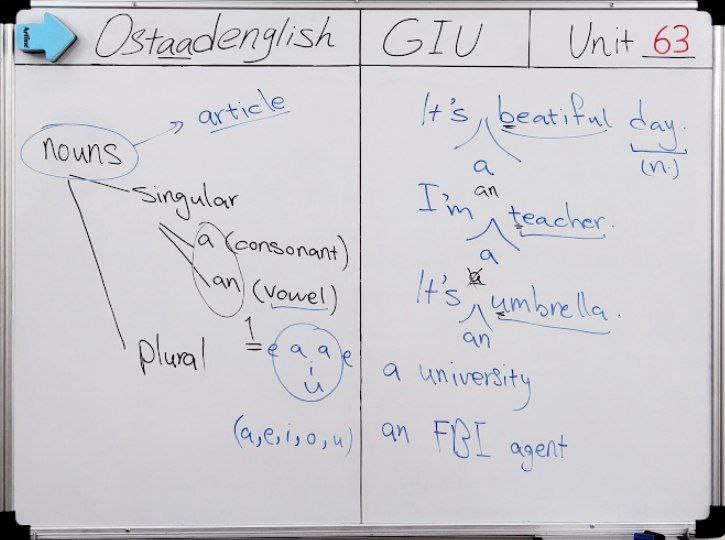 Ostaadenglish GIU Unit 63
article
nouns
singular
a (consonant)
an (vowel)
plural
1
= e a a e
i
u
(a, e, i, o, u)
It's beatiful day.
a (n.)
an
I'm teacher.
a
a
It's umbrella.
an
a university
an FBI agent